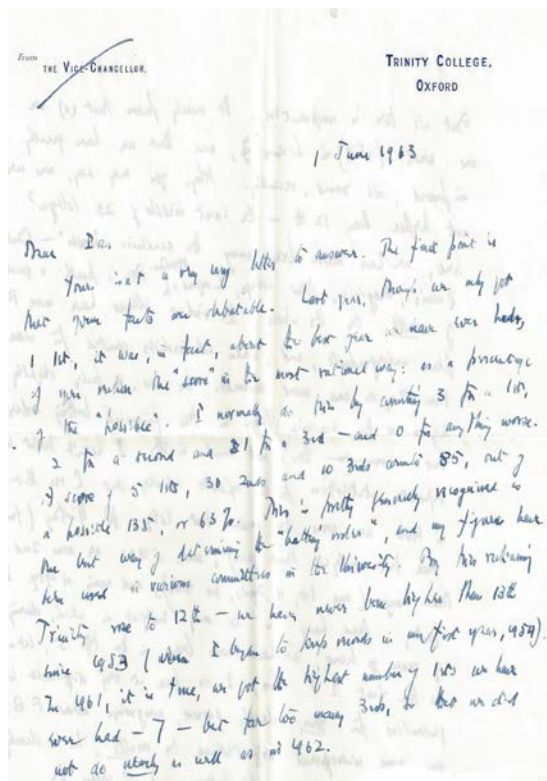 From
THE VICE-CHANCELLOR.
TRINITY COLLEGE,
OXFORD
1 June 1963
Dear Ian
Yours isn't a very easy letter to answer. The first point is
that your facts are debatable. Last year, though we only got
1 1st, it was, in fact, about the best year we have ever had,
if one reckons the "score" in the most rational way: as a percentage
of the "possible". I normally do this by counting 3 for a 1st,
2 for a second and 1 for a 3rd — and 0 for anything worse.
A score of 5 1sts, 30 2nds and 10 3rds counts 85, out of
a possible 135, or 63%. This is pretty generally recognised as
the best way of determining the "batting order", and my figures have
been used in various committees in the University. By this reckoning
Trinity rose to 12th — we have never been higher than 13th
since 1953 (when I began to keep records in our first year, 1954).
In 1961, it is true, we got the highest number of 1sts we have
ever had — 7 — but far too many 3rds, so that we did
not do nearly as well as in 1962.